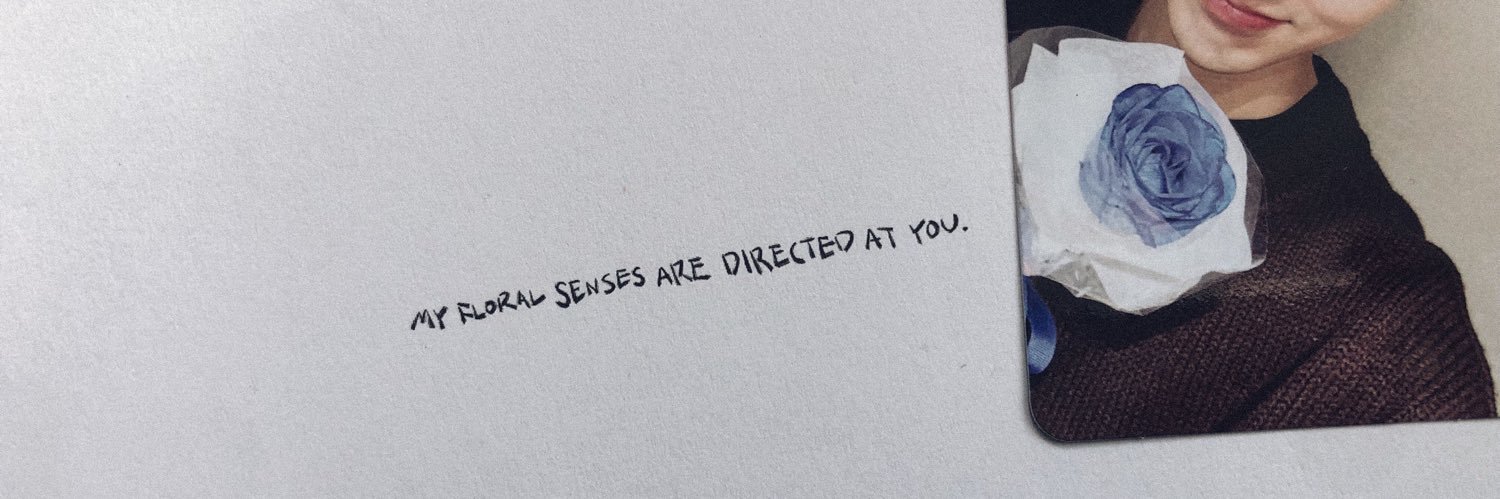 MY FLORAL SENSES ARE DIRECTED AT YOU.